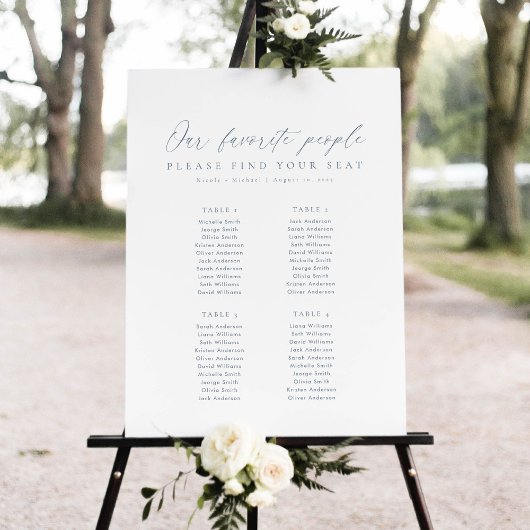 Our favorite people
PLEASE FIND YOUR SEAT
Nicole + Michael | August 20, 2025
TABLE 1
Michelle Smith
Jeorge Smith
Olivia Smith
Kristen Anderson
Oliver Anderson
Jack Anderson
Sarah Anderson
Liana Williams
Seth Williams
David Williams
TABLE 2
Jack Anderson
Sarah Anderson
Liana Williams
Seth Williams
David Williams
Michelle Smith
Jeorge Smith
Olivia Smith
Kristen Anderson
Oliver Anderson
TABLE 3
Sarah Anderson
Liana Williams
Seth Williams
Kristen Anderson
Oliver Anderson
David Williams
Michelle Smith
Jeorge Smith
Olivia Smith
Jack Anderson
TABLE 4
Liana Williams
Seth Williams
David Williams
Jack Anderson
Sarah Anderson
Michelle Smith
Jeorge Smith
Olivia Smith
Kristen Anderson
Oliver Anderson